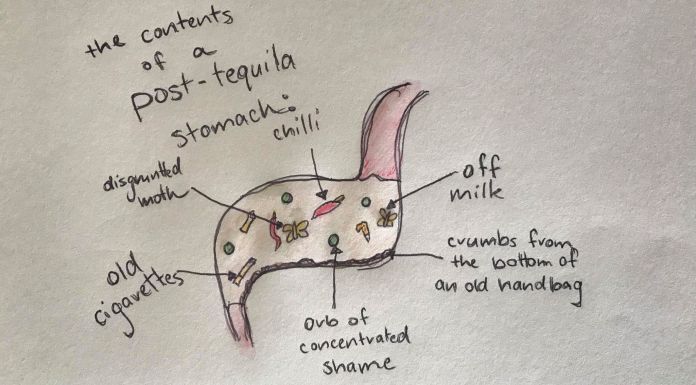 the contents
of a
post-tequila
stomach:
chilli
disgruntled
moth
off
milk
old
cigarettes
crumbs from
the bottom of
an old handbag
orb of
concentrated
shame